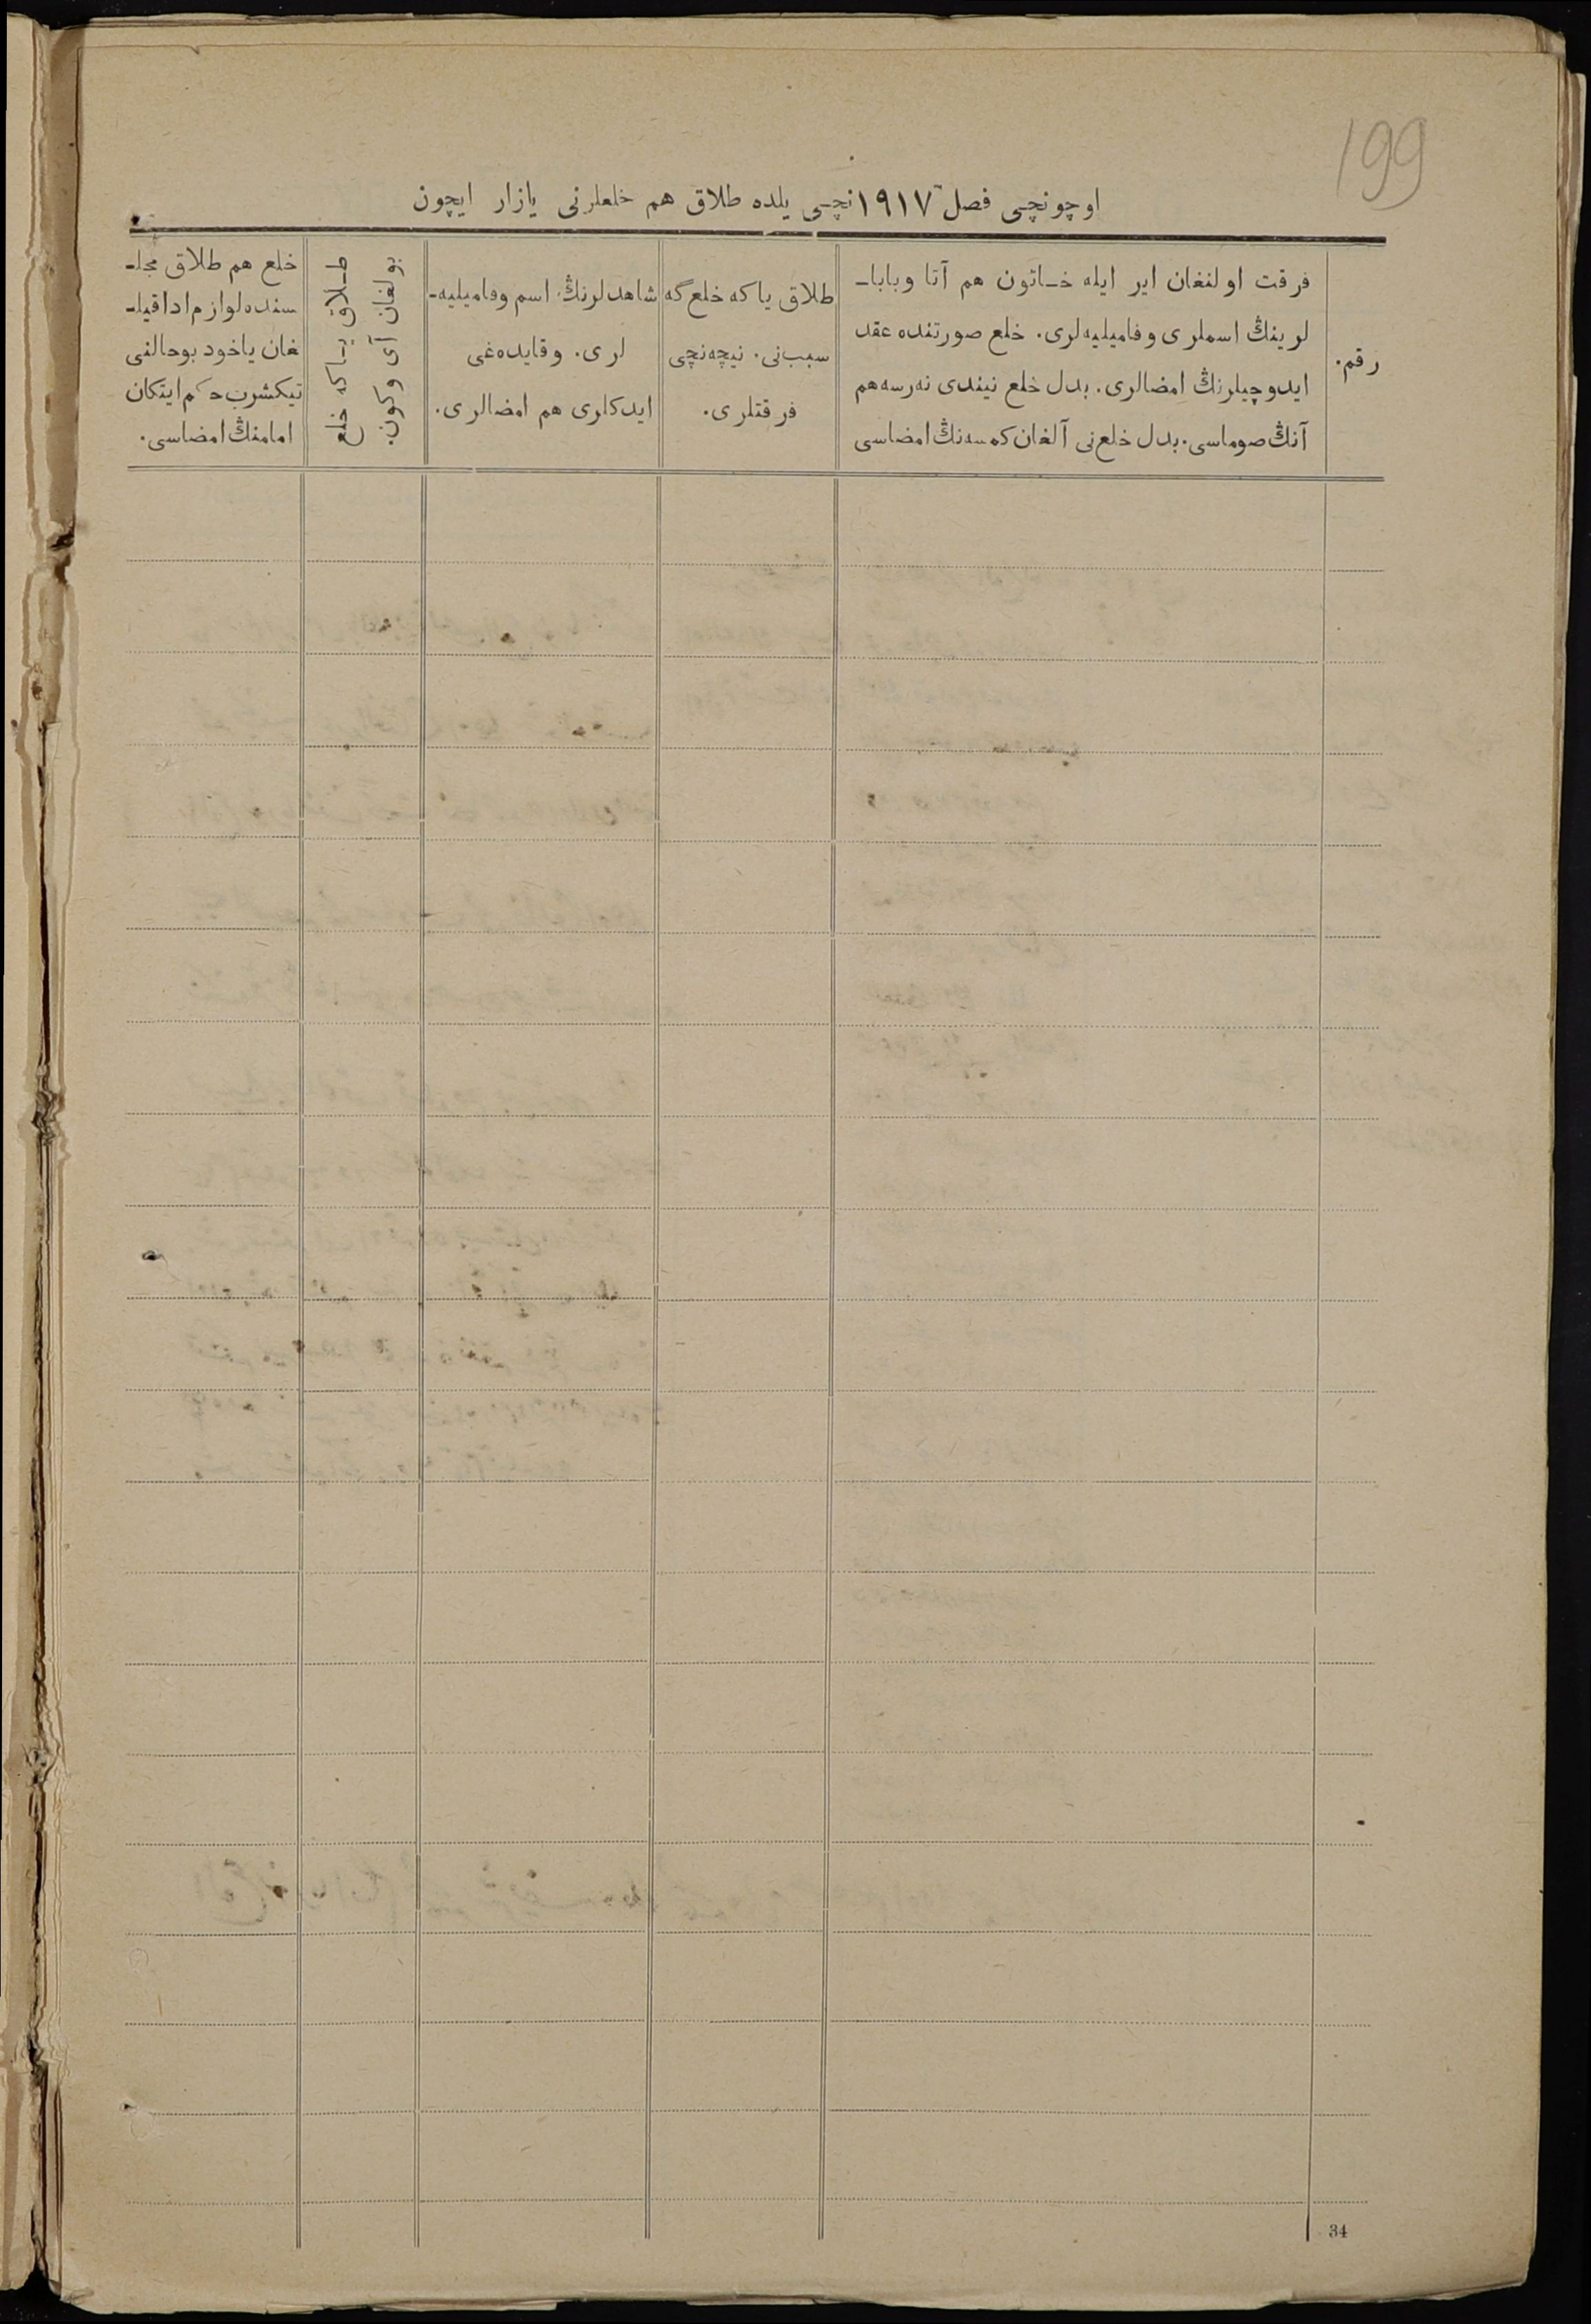 199
اوچونچی فصل ١٩١٧نچی یلده طلاق هم خلعلرنی یازار ایچون
رقم.
فرقت اولنغان ایر ایله خاتون هم آتا وبابا-
لرینڭ اسملری وفامیلیه‌لری. خلع صورتنده عقد
ایدوچیلرنڭ امضالری. بدل خلع نیندی نه‌رسه‌هم
آنڭ صوماسی. بدل خلع‌نی آلغان کمسه‌نڭ امضاسی
طلاق یا که خلع گه
سبب‌نی. نیچه‌نچی
فرقتلری.
شاهدلرنڭ اسم وفامیلیه-
لری. وقایده‌غی
ایدکلری هم امضالری.
طلاق یاکه خلع
بولغان آی وکون.
خلع هم طلاق مجل-
سنده لوازم ادا قیل-
غان یاخود بوحالنی
تیکشرب حکم ایتکان
امامنڭ امضاسی.
34